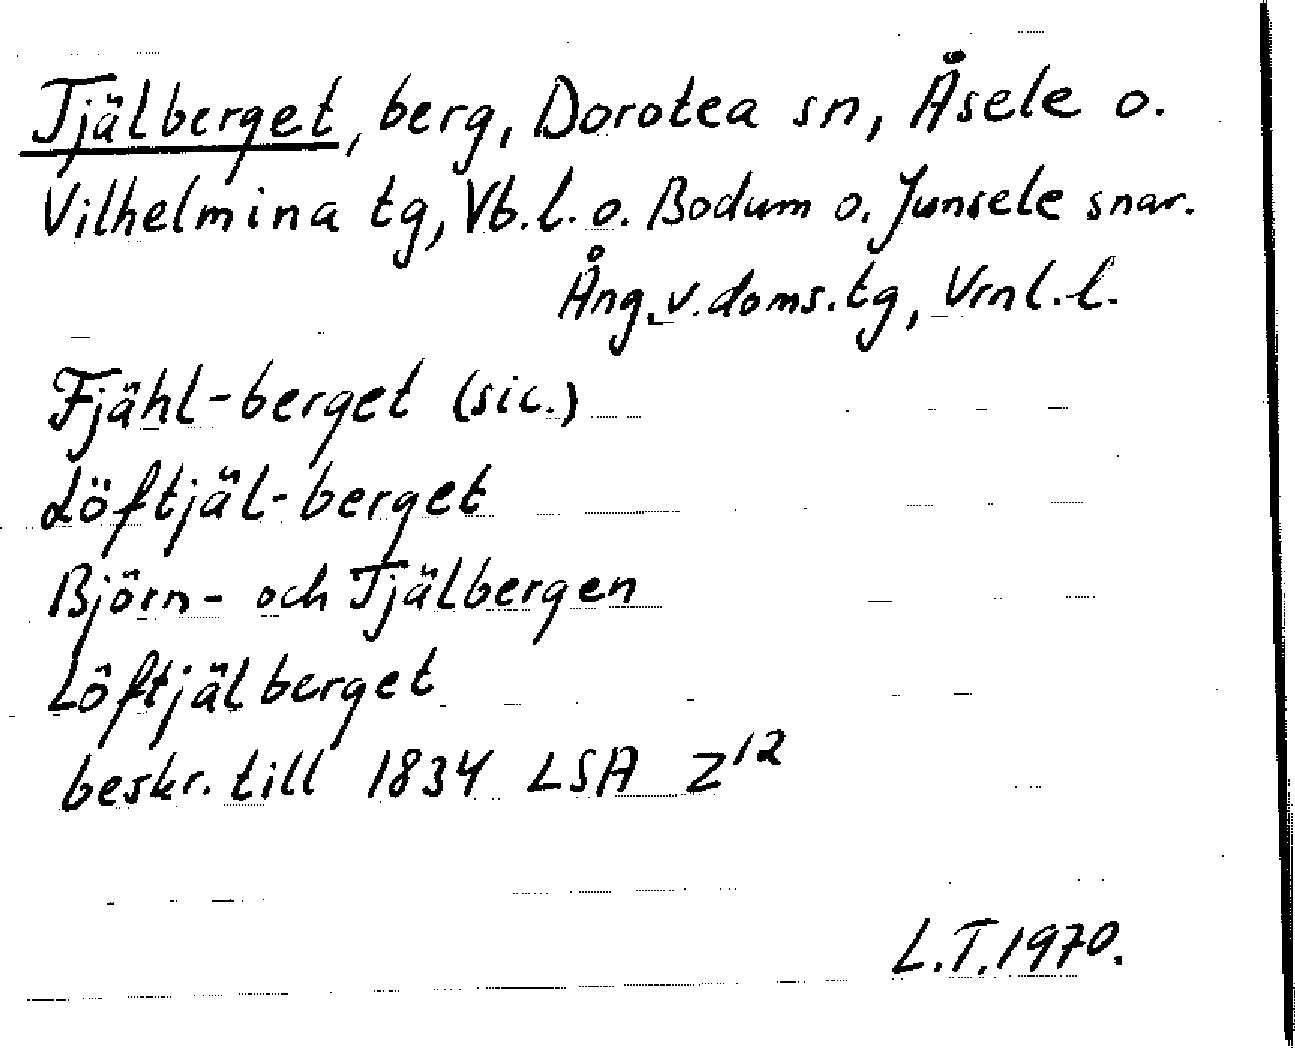 Tjälberget, berg, Dorotea sn, Åsele o.
Vilhelmina tg, Vb.l. o. Bodum o. Junsele snar.
Ång.v.doms.tg, Vrnl.l.
Fjähl-berget (sic.)
Löftjäl-berget
Björn- och Tjälbergen
Löftjälberget
beskr. till 1834 LSA Z12
L.T.1970.